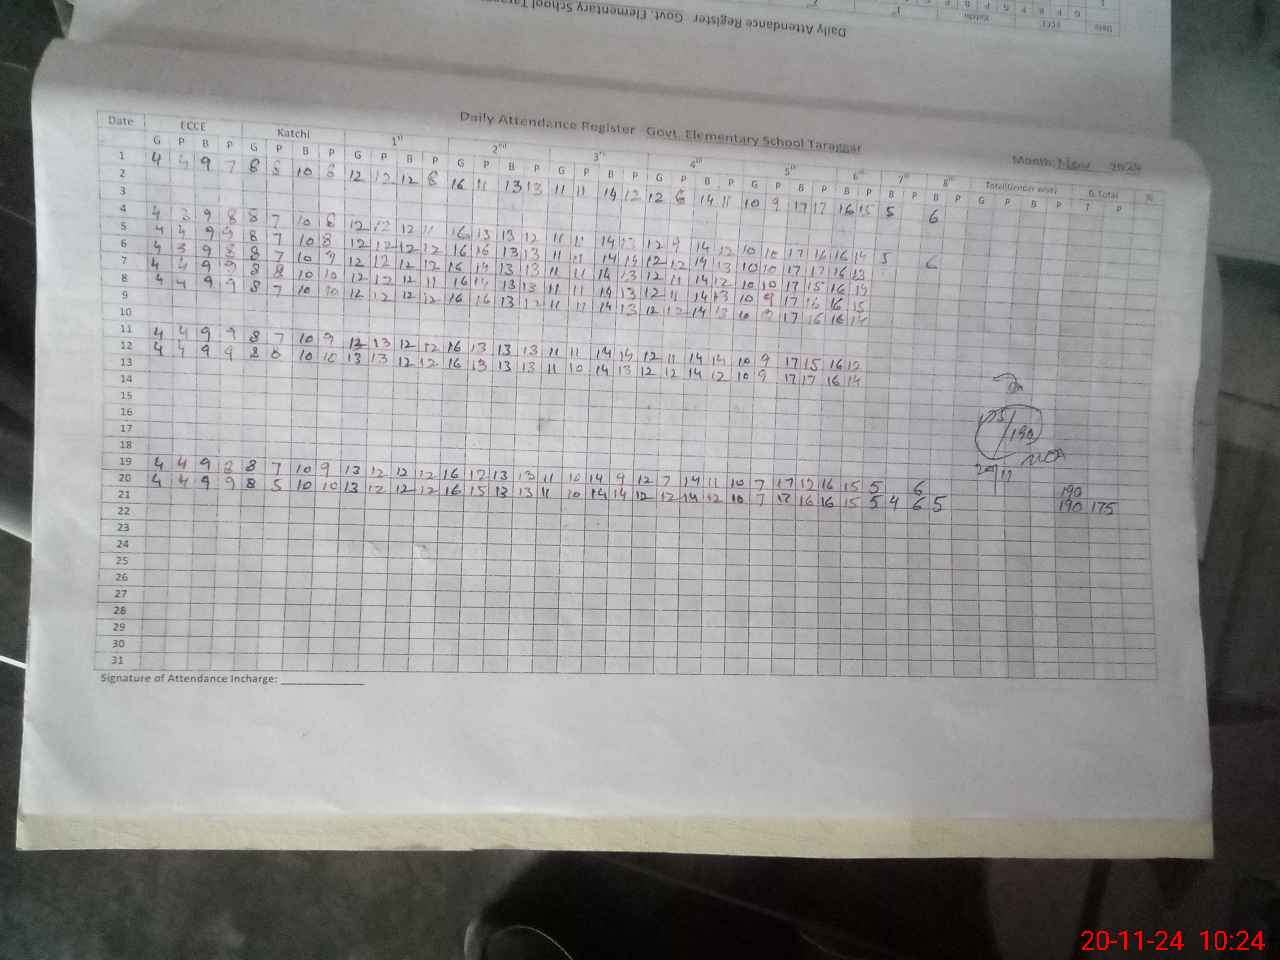 Daily Attendance Register Govt. Elementary School
Daily Attendance Register Govt. Elementary School Taraggar
Month: Nov 2024
Date ECCE Katchi 1st 2nd 3rd 4th 5th 6th 7th 8th G.Total %
G P B P G P B P G P B P G P B P G P B P G P B P G P B P B P B P B P G P B P T P
1 4 4 9 7 8 5 10 8 12 12 12 8 16 11 13 13 11 11 14 12 12 8 14 11 10 9 17 17 16 15 5 6
2
3
4 4 3 9 8 8 7 10 8 12 12 12 11 16 13 13 12 11 11 14 13 12 9 14 12 10 10 17 16 16 14 5 6
5 4 4 9 9 8 7 10 8 12 12 12 12 16 16 13 13 11 11 14 14 12 12 14 13 10 10 17 17 16 13
6 4 3 9 8 8 7 10 9 12 12 12 12 16 14 13 13 11 11 14 13 12 11 14 12 10 10 17 15 16 14
7 4 4 9 9 8 8 10 10 12 12 12 11 16 14 13 13 11 11 14 13 12 11 14 13 10 9 17 16 16 15
8 4 4 9 9 8 7 10 10 12 12 12 12 16 16 13 12 11 11 14 13 12 12 14 13 10 9 17 16 16 14
9
10
11 4 4 9 9 8 7 10 9 12 13 12 12 16 13 13 13 11 11 14 14 12 11 14 14 10 9 17 15 16 12
12 4 4 9 9 8 8 10 10 13 13 12 12 16 13 13 13 11 10 14 13 12 12 14 12 10 9 17 17 16 14
13
14
15
16
17
18
19 4 4 9 8 8 7 10 9 13 12 12 12 16 12 13 13 11 10 14 9 12 7 14 11 10 7 17 12 16 15 5 6 190
20 4 4 9 9 8 5 10 10 13 12 12 12 16 15 13 13 11 10 14 14 12 12 14 12 10 7 17 16 16 15 5 4 6 5 190 175
21
22
23
24
25
26
27
28
29
30
31
175/190
MEA
20/11
Signature of Attendance Incharge: ______________
20-11-24 10:24